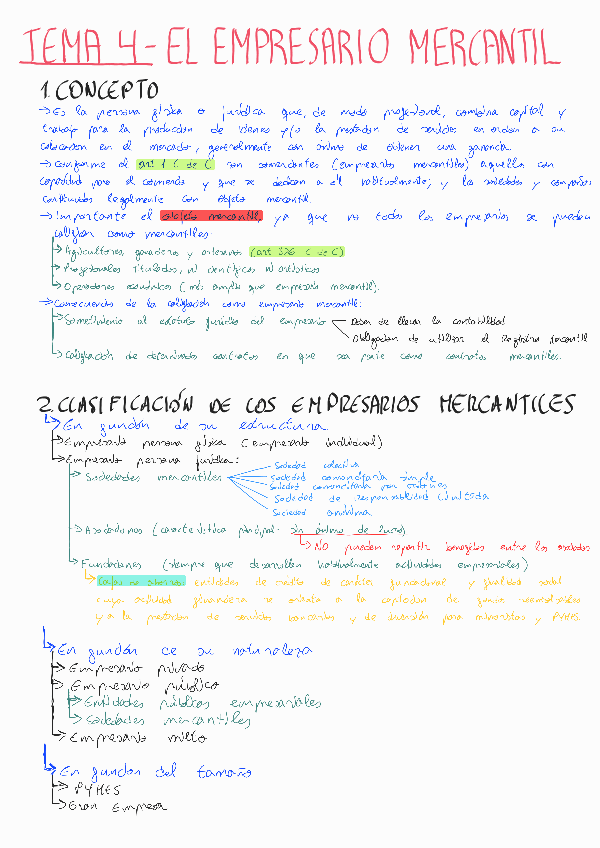 TEMA 4 - EL EMPRESARIO MERCANTIL
1. CONCEPTO
→ Es la persona física o jurídica que, de modo profesional, combina capital y
trabajo para la producción de bienes y/o la prestación de servicios en orden a su
colocación en el mercado, generalmente con ánimo de obtener una ganancia.
→ Conforme al art 1 C de C son comerciantes (empresarios mercantiles) aquellos con
capacidad para el comercio y que se dedican a él habitualmente, y las sociedades y compañías
constituidas legalmente con objeto mercantil.
→ Importante el objeto mercantil ya que no todos los empresarios se pueden
calificar como mercantiles:
→ Agricultores, ganaderos y artesanos (art 326 C de C)
→ Profesionales titulados, ni científicos ni artísticos
→ Operadores económicos (más amplio que empresario mercantil).
→ Consecuencias de la calificación como empresario mercantil:
→ Sometimiento al estatuto jurídico del empresario
Deber de llevar la contabilidad
Obligación de utilizar el Registro Mercantil
→ Calificación de determinados contratos en que sea parte como contratos mercantiles.
2. CLASIFICACIÓN DE LOS EMPRESARIOS MERCANTILES
→ En función de su estructura
→ Empresario persona física (empresario individual)
→ Empresario persona jurídica:
→ Sociedades mercantiles
Sociedad colectiva
Sociedad comanditaria simple
Sociedad comanditaria por acciones
Sociedad de responsabilidad limitada
Sociedad anónima
→ Asociaciones (característica principal: sin ánimo de lucro)
→ NO pueden repartir beneficios entre los asociados
→ Fundaciones (siempre que desarrollen habitualmente actividades empresariales)
→ Cajas de ahorros: entidades de crédito de carácter fundacional y finalidad social
cuya actividad financiera se orienta a la captación de fondos reembolsables
y a la prestación de servicios bancarios y de inversión para minoristas y PYMES.
→ En función de su naturaleza
→ Empresario privado
→ Empresario público
→ Entidades públicas empresariales
→ Sociedades mercantiles
→ Empresario mixto
→ En función del tamaño
→ PYMES
→ Gran Empresa